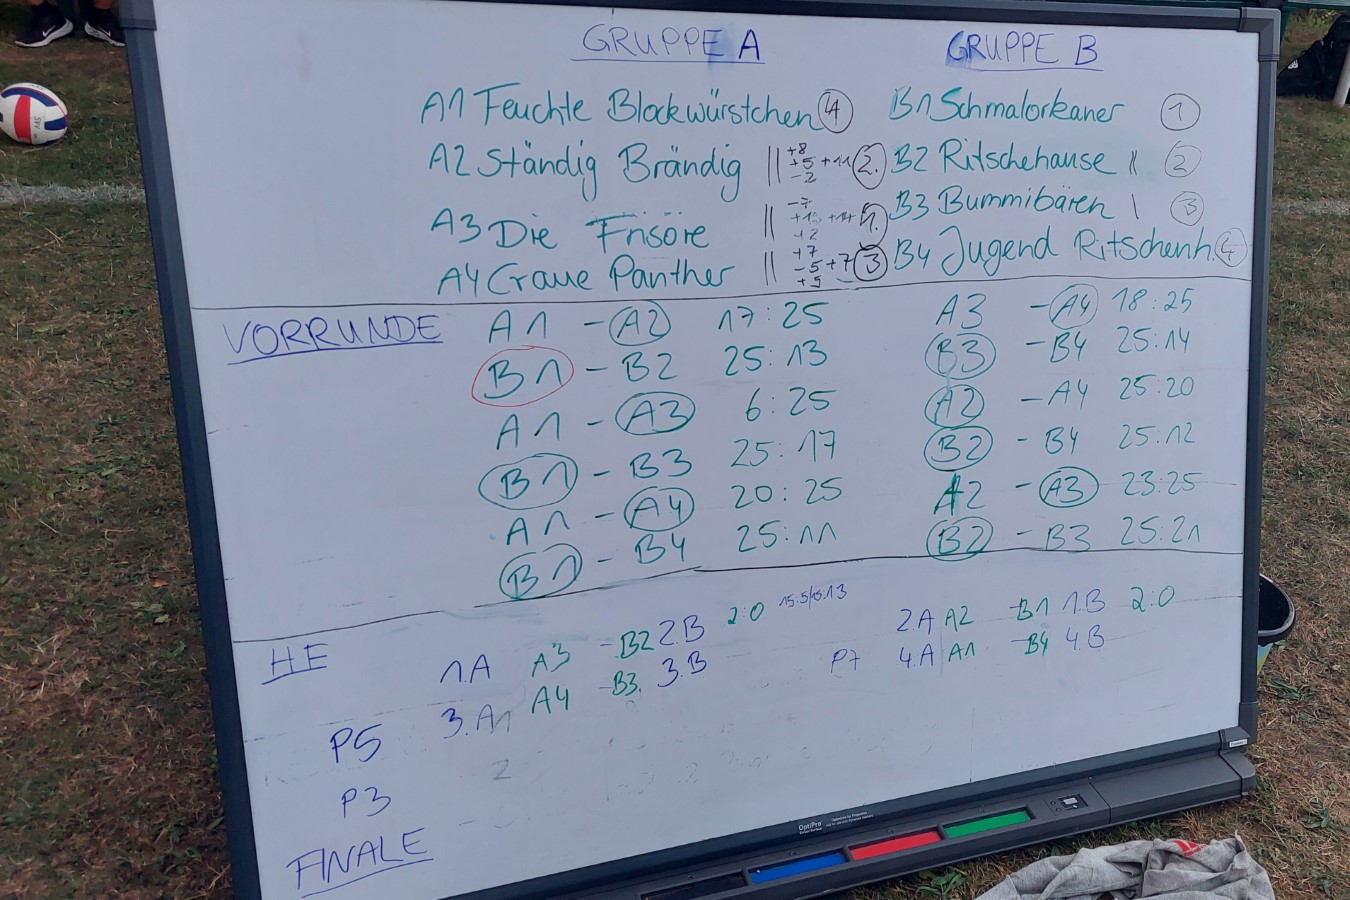 GRUPPE A GRUPPE B
A1 Feuchte Blockwürstchen 4 B1 Schmalorkaner 1
A2 Ständig Brändig || +8 +5 -2 +11 2. B2 Ritschehause || 2
A3 Die Frisöre || -7 +2 1. B3 Bummibären | 3
A4 Graue Panther || +7 -5 +5 +7 3 B4 Jugend Ritschenh. 4
VORRUNDE A1 - A2 17:25 A3 - A4 18:25
B1 - B2 25:13 B3 - B4 25:14
A1 - A3 6:25 A2 - A4 25:20
B1 - B3 25:17 B2 - B4 25:12
A1 - A4 20:25 A2 - A3 23:25
B1 - B4 25:11 B2 - B3 25:21
HE 1.A A3 - B2 2.B 2:0 15:5/15:13 2.A A2 - B1 1.B 2:0
P5 3.A A4 - B3 3.B P7 4.A A1 - B4 4.B
P3
FINALE
OptiPro